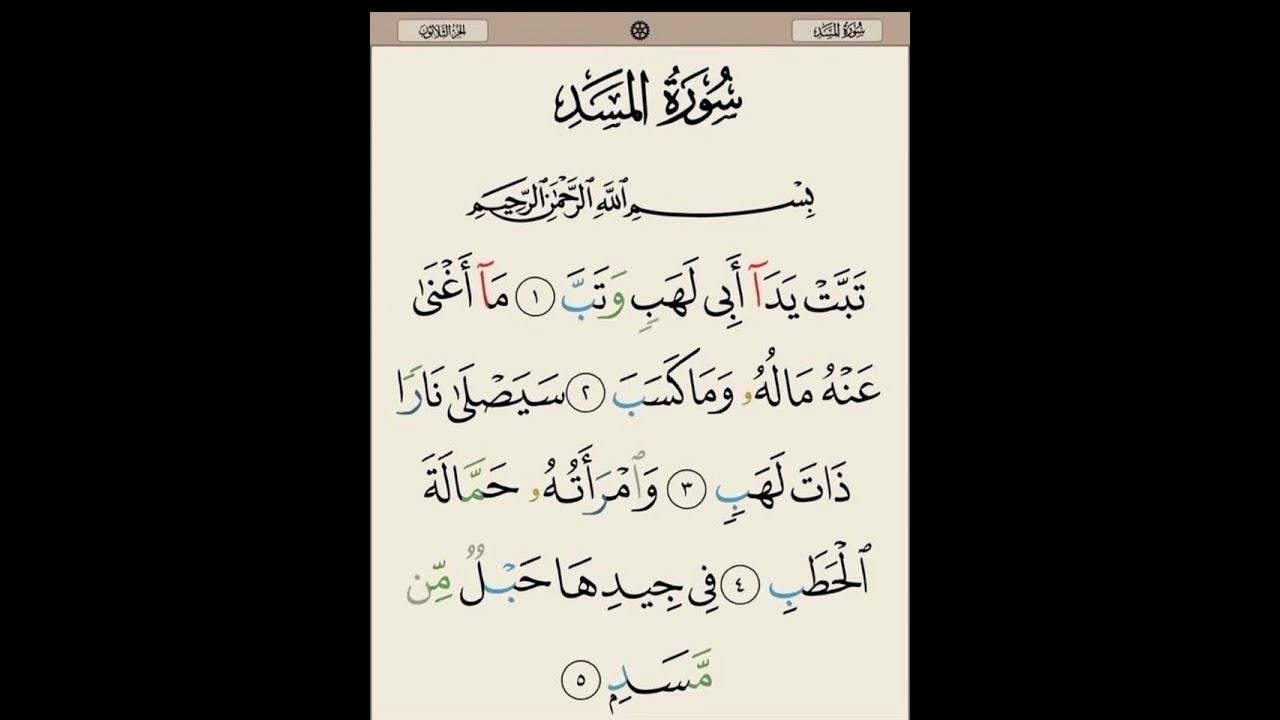 سُورَةُ المَسَدِ
الجُزْءُ الثَّلَاثُونَ
سُورَةُ المَسَدِ
بِسْمِ ٱللَّهِ ٱلرَّحْمَٰنِ ٱلرَّحِيمِ
تَبَّتْ يَدَآ أَبِى لَهَبٍ وَتَبَّ ١ مَآ أَغْنَىٰ
عَنْهُ مَالُهُۥ وَمَا كَسَبَ ٢ سَيَصْلَىٰ نَارًا
ذَاتَ لَهَبٍ ٣ وَٱمْرَأَتُهُۥ حَمَّالَةَ
ٱلْحَطَبِ ٤ فِى جِيدِهَا حَبْلٌ مِّن
مَّسَدٍ ٥